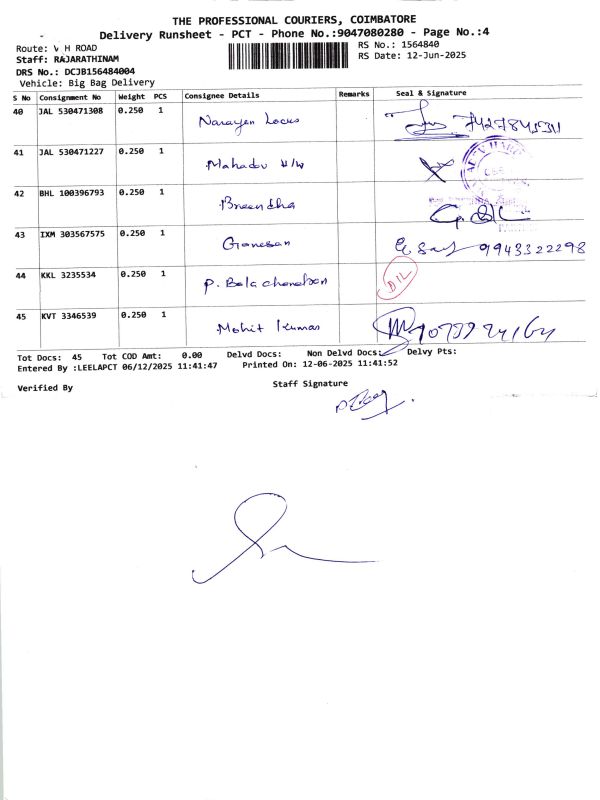 THE PROFESSIONAL COURIERS, COIMBATORE
Delivery Runsheet - PCT - Phone No.:9047080280 - Page No.:4
Route: V H ROAD
RS No.: 1564840
Staff: RAJARATHINAM
RS Date: 12-Jun-2025
DRS No.: DCJB156484004
Vehicle: Big Bag Delivery
S No Consignment No Weight PCS Consignee Details Remarks Seal & Signature
40 JAL 530471308 0.250 1 Narayen Locus
41 JAL 530471227 0.250 1 Mahadev H/W
42 BHL 100396793 0.250 1 Breendha
43 IXM 303567575 0.250 1 Ganesan 9943322298
44 KKL 3235534 0.250 1 P. Bala chandran D/L
45 KVT 3346539 0.250 1 Mohit Kumar
Tot Docs: 45 Tot COD Amt: 0.00 Delvd Docs: Non Delvd Docs: Delvy Pts:
Entered By :LEELAPCT 06/12/2025 11:41:47 Printed On: 12-06-2025 11:41:52
Verified By Staff Signature